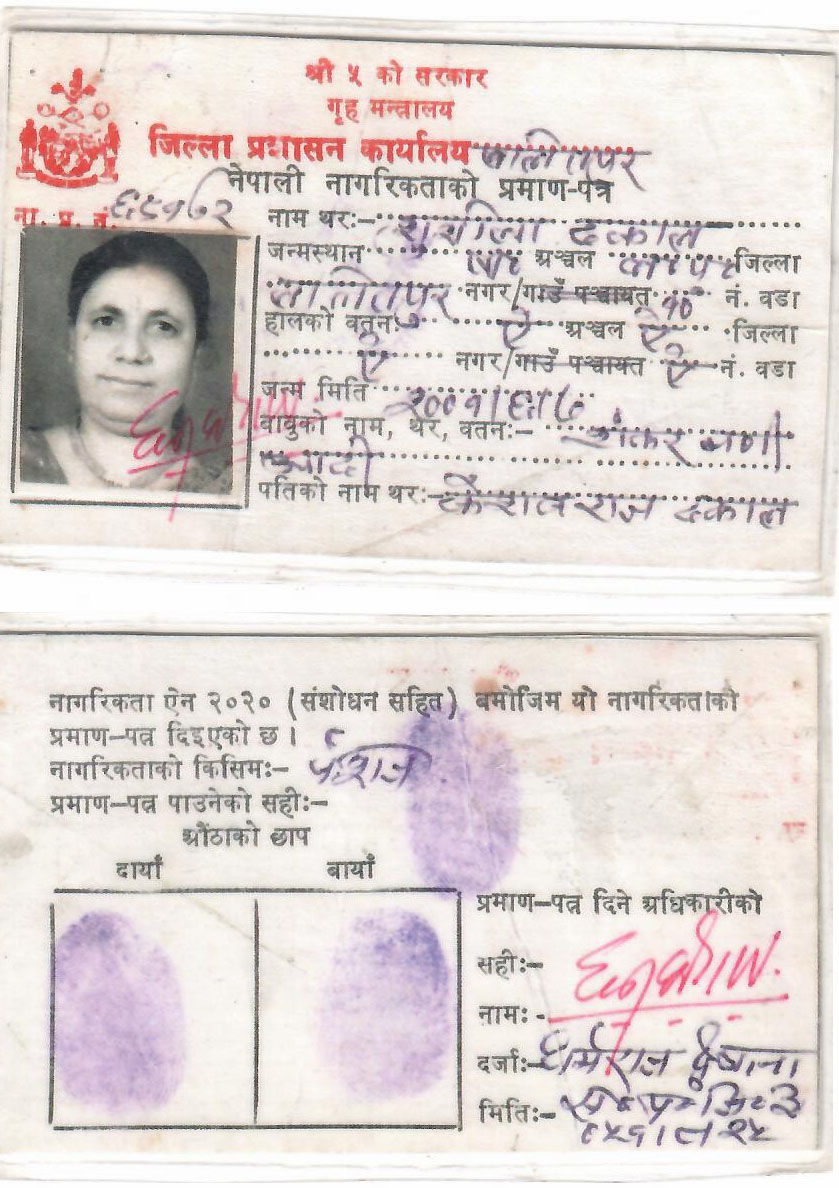 श्री ५ को सरकार
गृह मन्त्रालय
जिल्ला प्रशासन कार्यालय ललितपुर
नेपाली नागरिकताको प्रमाण-पत्र
ना. प्र. नं.
नाम थरः- सुशीला ढकाल
जन्मस्थान अञ्चल जिल्ला
ललितपुर नगर/गाउँ पञ्चायत १० नं. वडा
हालको वतनः- ऐ अञ्चल ऐ जिल्ला
ऐ नगर/गाउँ पञ्चायत ऐ नं. वडा
जन्म मिति
बाबुको नाम, थर, वतनः- शंकर मणी
पतिको नाम थरः- केशवराज ढकाल
नागरिकता ऐन २०२० (संशोधन सहित) बमोजिम यो नागरिकताको
प्रमाण-पत्र दिइएको छ ।
नागरिकताको किसिमः- वंशज
प्रमाण-पत्र पाउनेको सहीः-
औंठाको छाप
दायाँ बायाँ
प्रमाण-पत्र दिने अधिकारीको
सहीः-
नामः-
दर्जाः- धर्मराज
मितिः-